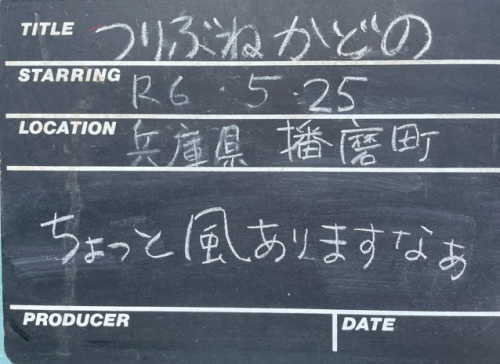 TITLE つりぶねかどの
STARRING R6.5.25
LOCATION 兵庫県 播磨町
ちょっと風ありますなぁ
PRODUCER DATE